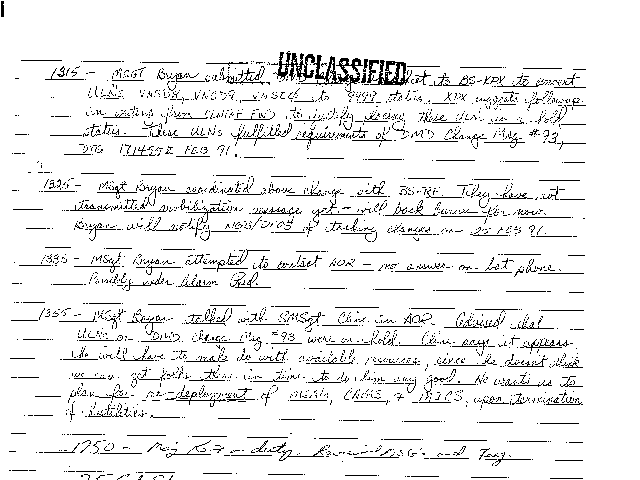 UNCLASSIFIED
1315 - MSGT Bryan submitted DMD change to BS-XPX to convert
ULN's to 9999 status. XPX suggests followup
in writing from FWD to justify placing these ULN in a hold
status. These ULN's fulfilled requirements of DMD Change Msg #93,
DTG 171455Z FEB 91.
1325 - MSgt Bryan coordinated above change with They have not
transmitted mobilization message yet - will back burner for now.
Bryan will notify of tasking changes on 25 FEB 91.
1335 - MSgt Bryan attempted to contact AOR - no answer on hot phone.
Possibly under Alarm Red.
1355 - MSgt Bryan talked with SMSgt Cline in AOR. Advised that
ULNs on DMD Change Msg #93 were on hold. Cline says it appears
he will have to make do with available resources, since he doesn't think
we can get folks there in time to do him any good. He wants us to
plan for re-deployment of & upon termination
of hostilities.
1750 - Maj on duty. Reviewed MSG's and